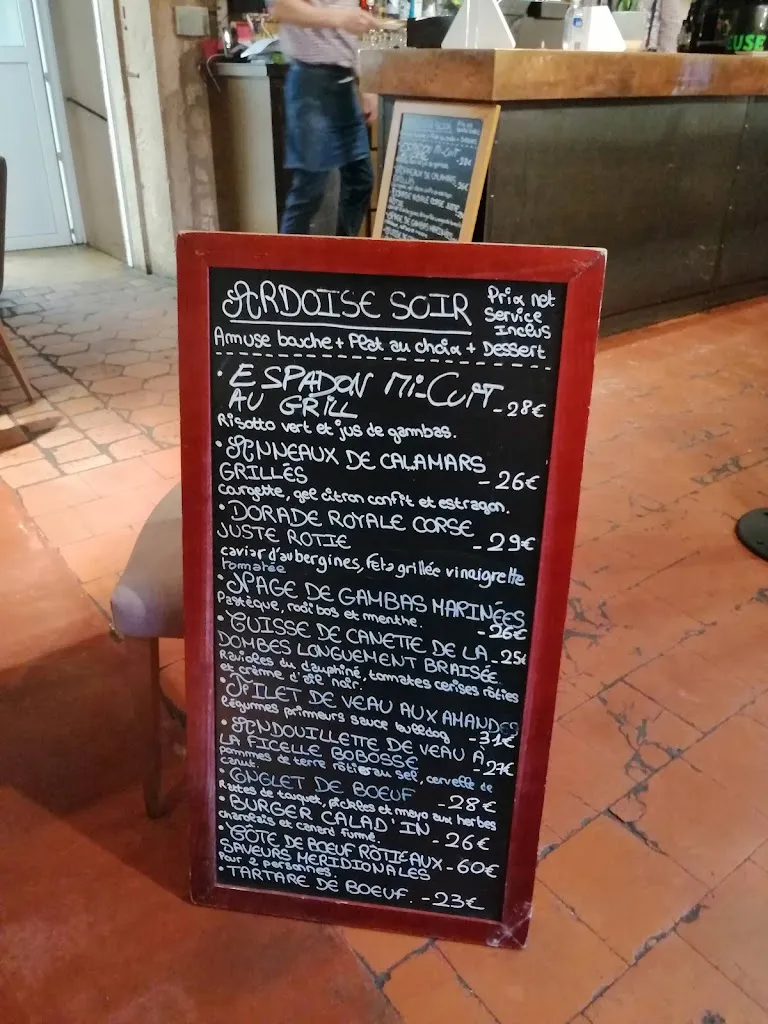 ARDOISE SOIR
Prix net
Service
Inclus
Amuse bouche + Plat au choix + Dessert
• ESPADON MI-CUIT
AU GRILL - 28€
Risotto vert et jus de gambas.
• ANNEAUX DE CALAMARS
GRILLÉS - 26€
courgette, gel citron confit et estragon.
• DORADE ROYALE CORSE
JUSTE ROTIE - 29€
caviar d'aubergines, Feta grillée vinaigrette
tomatée
• NAGE DE GAMBAS MARINÉES
Pastèque, radi bos et menthe. - 26€
• CUISSE DE CANETTE DE LA
DOMBES LONGUEMENT BRAISÉE - 25€
Ravioles du dauphiné, tomates cerises rôties
et crème d'ail noir.
• FILET DE VEAU AUX AMANDES
Légumes primeurs sauce bulldog - 31€
• ANDOUILLETTE DE VEAU À
LA FICELLE BOBOSSE - 27€
pommes de terre rôties au sel, cervelle de
canut.
• ONGLET DE BOEUF - 28€
Rattes de touquet, pickles et mayo aux herbes
• BURGER CALAD'IN - 26€
charolais et canard fumé.
• CÔTE DE BOEUF RÔTIE AUX - 60€
SAVEURS MERIDIONALES
Pour 2 personnes.
• TARTARE DE BOEUF. - 23€